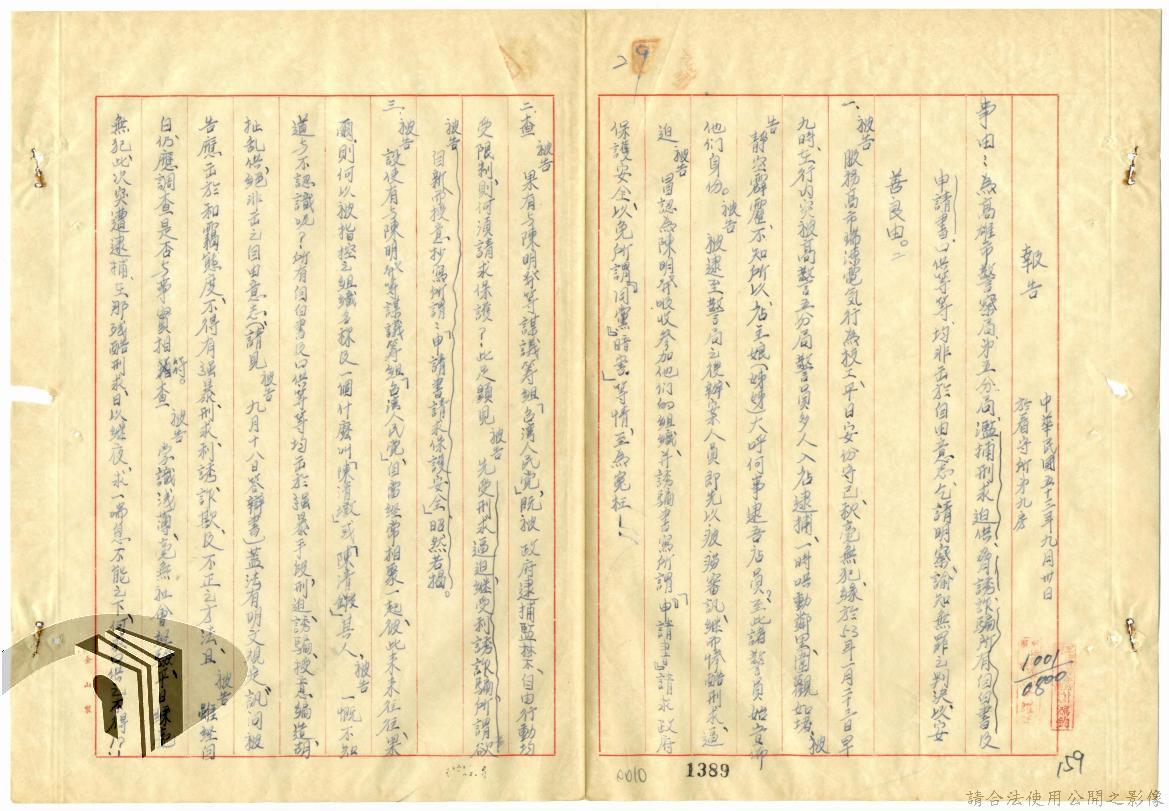 報告
中華民國五十三年九月卅日
於看守所第九房
事由:為高雄市警察局第五分局濫捕刑求迫供脅誘詐騙所有自白書及
申請書、口供等等、均非出於自由意志、乞請明察、諭知無罪之判決、以安
善良由。
一、被告 服務高市瑞濤電気行為技工、平日安份守己、秋毫無犯、緣於53年一月二十三日早
九時、在行内突被高警五分局警員多人入店逮捕、一時哄動鄰里圍觀如堵、被
告靜空霹靂、不知所以、店主娘(姊姊)大呼何事逮吾店員、至此諸警員始言佈
他們身份。被告 被逮至警局之後、辦案人員即先以疲勞審訊、繼而慘酷刑求、逼
迫 被告 冒認為陳明 等吸收參加他們的組織、并誘騙書寫所謂「申請書」請求政府
保護安全、以免所謂「同黨」暗害」等情、至為冤枉!
二、查 被告 果有与陳明 等謀議籌組「台湾人民党」、既被 政府逮捕監禁、自由行動均
受限制、則何須請求保護?此足顯見 被告 先受刑求逼迫、繼受利誘詐騙、所謂欲
被告 自新而授意抄寫所謂:「申請書請求保護安全」昭然若揭。
三、被告 設使有与陳明 等謀議籌組「台湾人民党」、但需經常相聚一起、彼此來來往往、果
爾、則何以被指控之組織名稱及一個什麼叫「陳清 」或「陳清 」其人、被告 一慨不知
道与不認識呢?所有自白書及口供等等均出於強暴手段、刑迫、誘騙、授意編造胡
扯乱供、絕非出之自由意志(請見 被告 九月十八日答辯書)蓋法有明文規定、訊问被
告應出於和靄態度、不得有强暴刑求利誘詐欺及不正之方法、且 被告 雖經自
白仍應調查是否与事實相符。查 被告 常識浅薄、毫無社會
無犯、此次突遭逮捕、立那殘酷刑求、日以继夜、求一喘息不能之下、
29
1001
0800
159
0010
1389
金山製
請合法使用公開之影像